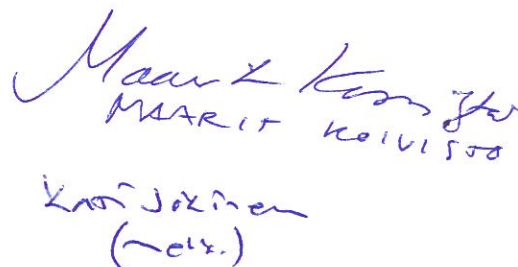 Maarit Koivisto
MAARIT KOIVISTO
Jokinen